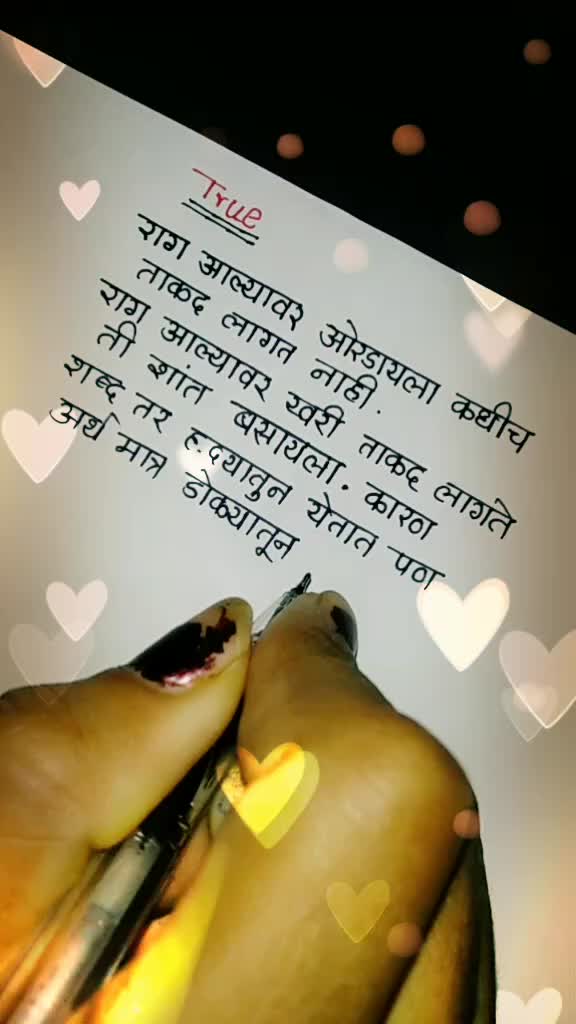 True
राग आल्यावर ओरडायला कधीच
ताकद लागत नाही.
राग आल्यावर खरी ताकद लागते
ती शांत बसायला. कारण
शब्द तर हृदयातुन येतात पण
अर्थ मात्र डोक्यातून